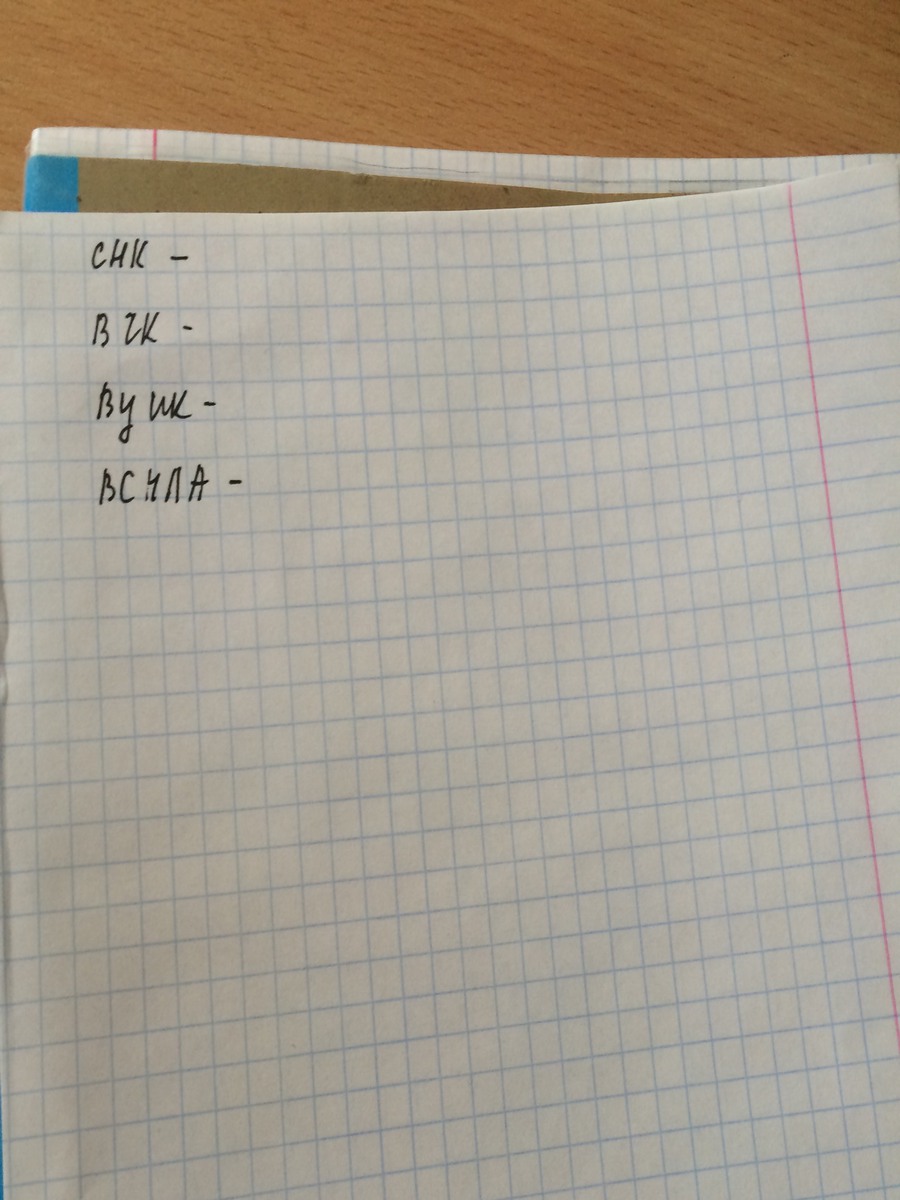 СНК -
ВЧК -
ВУЦИК -
ВСНПА -